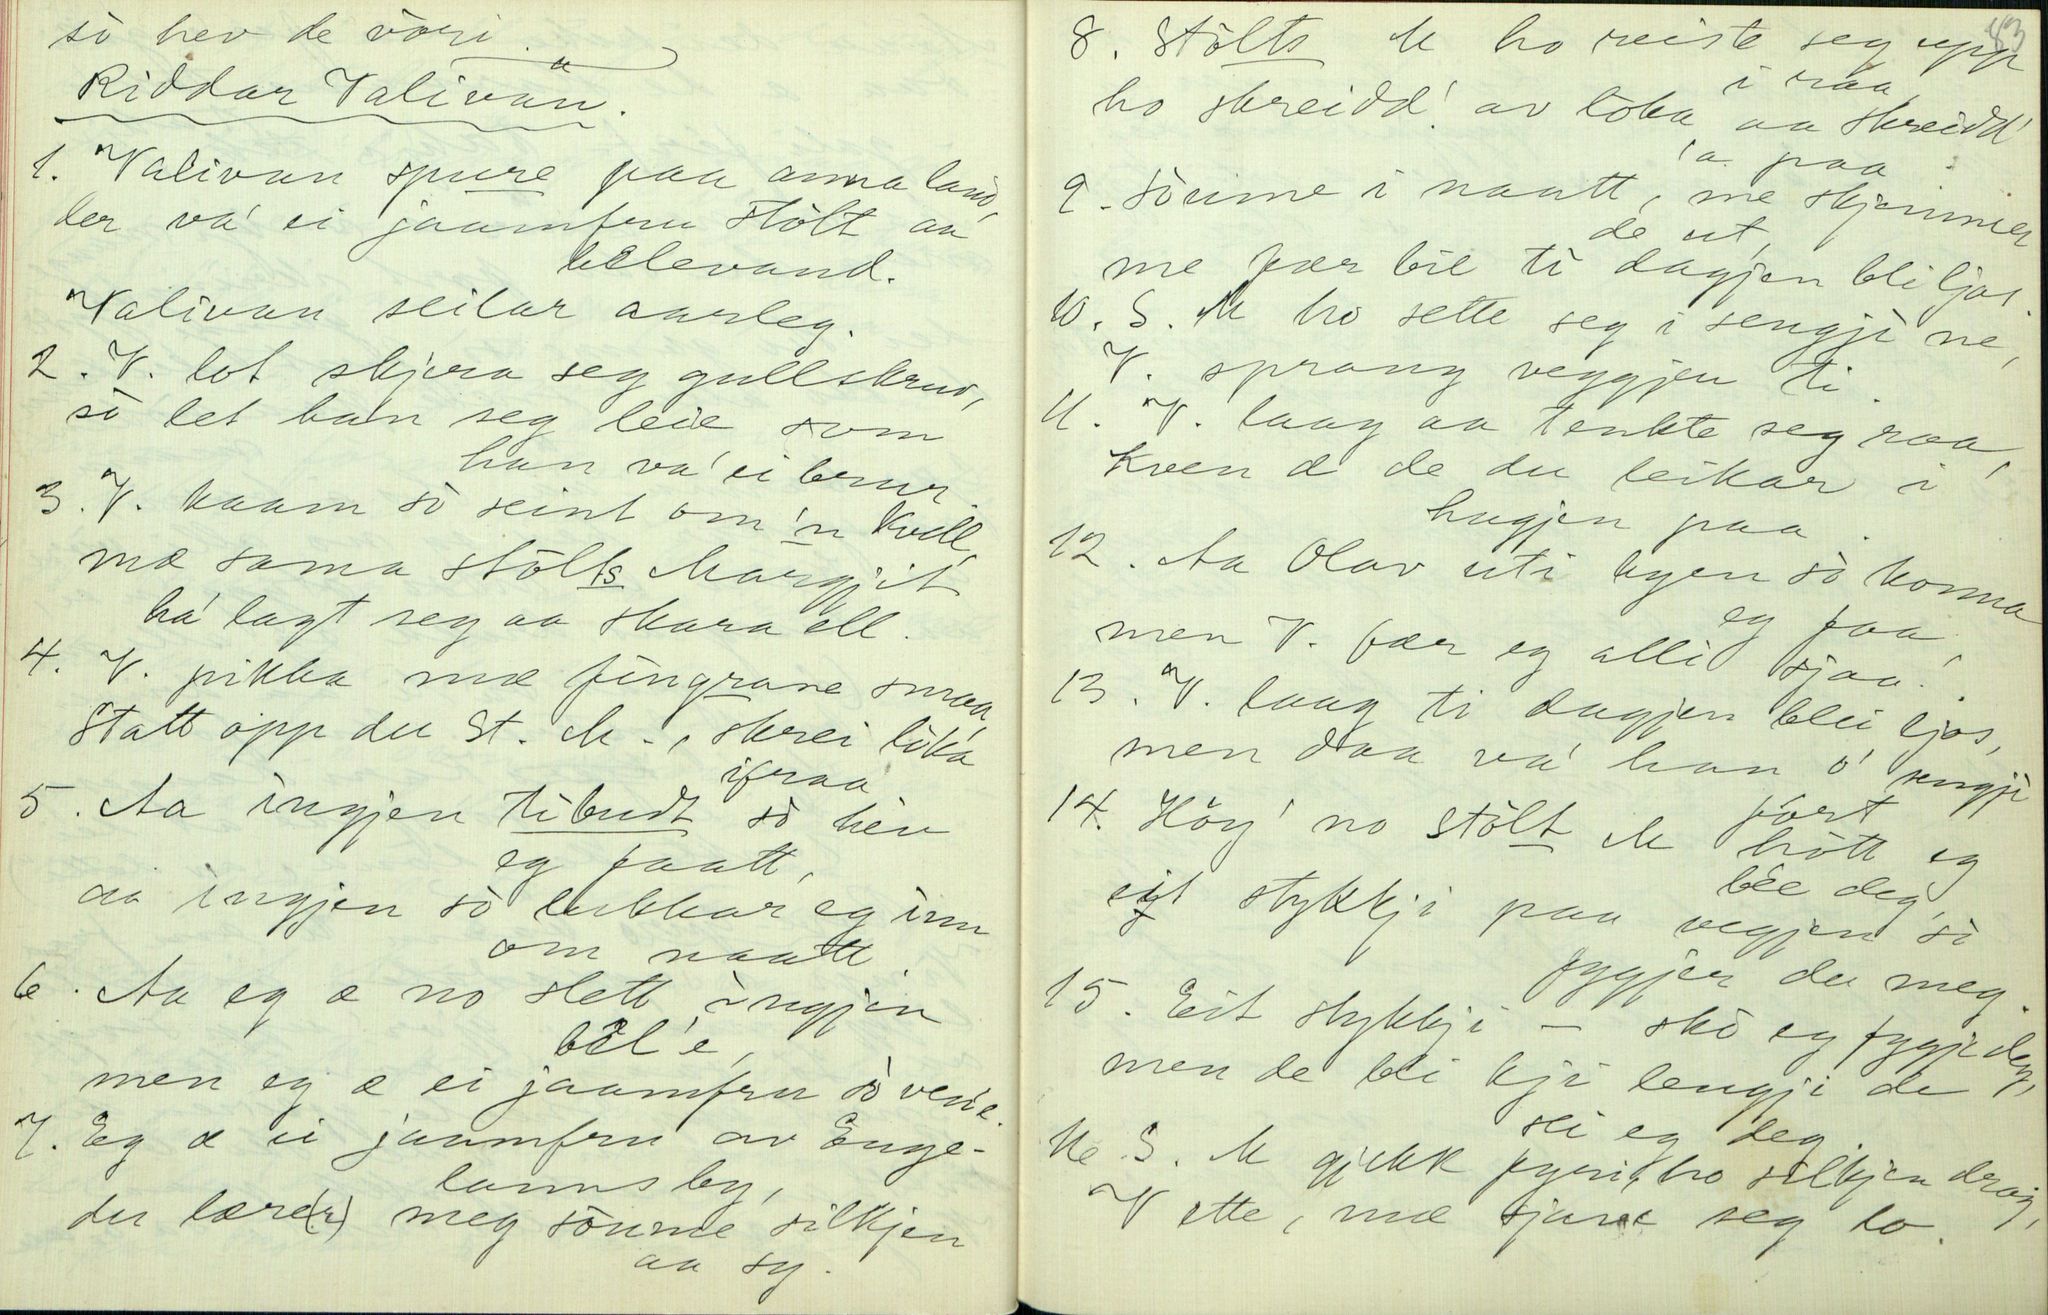 sò hev de vòri.
Riddar Valivan.
1. Valivan spure paa anna land,
der va' ei jaamfru stòlt aa
belevand.
Valivan seilar aarleg.
2. V. lot skjera seg gullskrud,
sò let han seg leie som
han va' ei brur.
3. V. kaam sò seint om 'n kvell,
mæ sama stòlts Margjit
ha' lagt seg aa skara ell.
4. V. pikka mæ fingrane smaa,
Statt opp du St. M., skrei lòka
ifraa
5. Aa ingjen tibudt sò hev
eg faatt,
aa ingjen sò lukkar eg inn
om naatt.
6. Aa eg æ no slett ingjen
bel'e,
men eg æ ei jaamfru sò ven'e.
7. Eg æ ei jaamfru av Enge-
lanns by,
du lære(r) meg sòume silkjen
aa sy.
83
8. Stòlts M ho reiste seg upp
i raa,
ho skreidd' av lòka aa skreidd'
'a paa.
9. Sòume i naatt, me skjemmer
de ut,
me fær bie ti dagjen bli ljos
10. S. M ho sette seg i sengji ne,
V. sprang veggjen ti.
11. V. laag aa tenkte seg raa,
Kven æ de du leikar i
hugjen paa.
12. Aa Olav uti byen sò komma
eg faa,
men V. fær eg alli sjaa.
13. V. laag ti dagjen blei ljos,
men daa va' han ó sengji
fòrt
14. Høy' no stòlt M hòtt eg
be'e deg,
eit stykkji paa vegjen sò
fygjer du meg.
15. Eit stykkji – skò eg fygje deg,
men de bli kji lengji de
sei eg deg.
16 S. M gjekk fyri, ho silkjen drog,
V ette, mæ sjave seg lo.